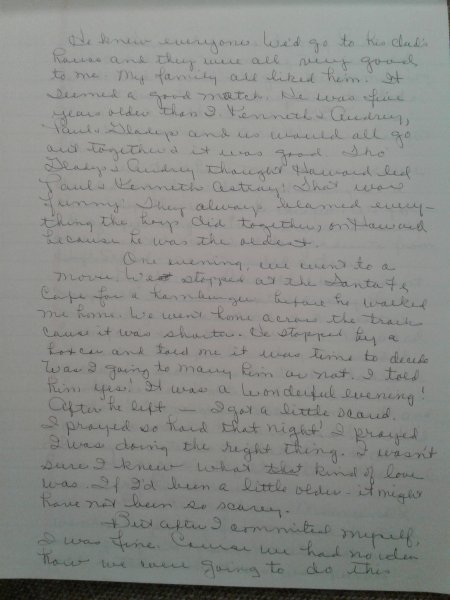 He knew everyone. We'd go to his dad's
house and they were all very good
to me. My family all liked him. It
seemed a good match. He was five
years older than I. Kenneth & Audrey,
Paul & Gladys and us would all go
out together & it was good. Tho
Gladys & Audrey thought Howard led
Paul & Kenneth astray! That was
funny! They always blamed every-
thing the boys did together, on Howard
because he was the oldest.
One evening, we went to a
movie. We stopped at the Santa Fe
Cafe for a hamburger before he walked
me home. We went home across the track
cause it was shorter. He stopped by a
boxcar and told me it was time to decide
was I going to marry him or not. I told
him yes! It was a wonderful evening!
After he left — I got a little scared.
I prayed so hard that night! I prayed
I was doing the right thing. I wasn't
sure I knew what that kind of love
was. If I'd been a little older - it might
have not been so scarey.
But after I committed myself,
I was fine. Course we had no idea
how we were going to do this